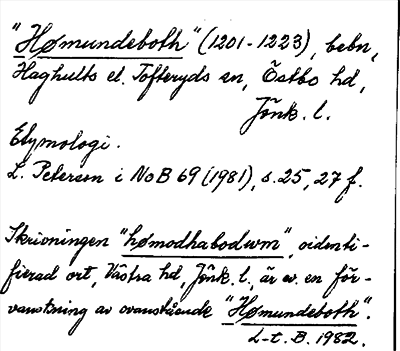 "Hømundeboth" (1201-1223), bebn,
Haghults el. Tofteryds sn, Östbo hd,
Jönk. l.
Etymologi.
L. Peterson i NoB 69 (1981), s. 25, 27 f.
Skrivningen "hømodhabodum", oidenti-
fierad ort, Västra hd, Jönk. l., är ev. en för-
vanskning av ovanstående "Hømundeboth".
L-t. B. 1982.